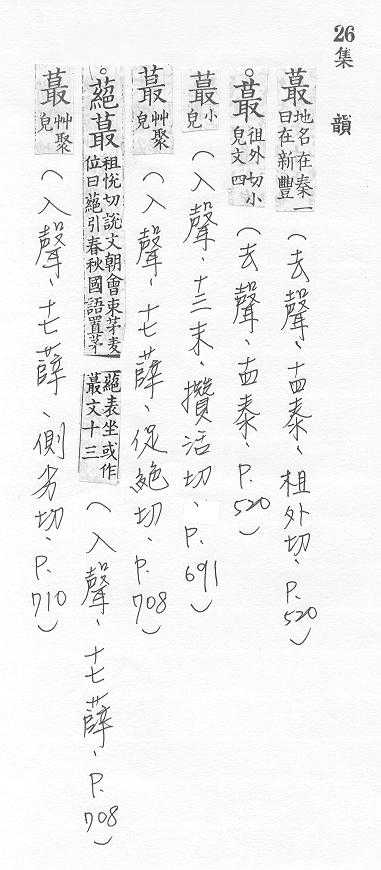 26
集韻
蕞地名在秦一曰在新豐(去聲、十四泰、祖外切、P.520)
。蕞祖外切小皃文四(去聲、十四泰、P.520)
蕞小皃(入聲、十三末、攢活切、P.691)
蕞艸聚皃(入聲、十七薛、促絕切、P.708)
。蕝蕞祖悅切說文朝會束茅表位曰蕝引春秋國語置茅蕝表坐或作蕞文十三(入聲、十七薛、P.708)
蕞艸聚皃(入聲、十七薛、側劣切、P.710)